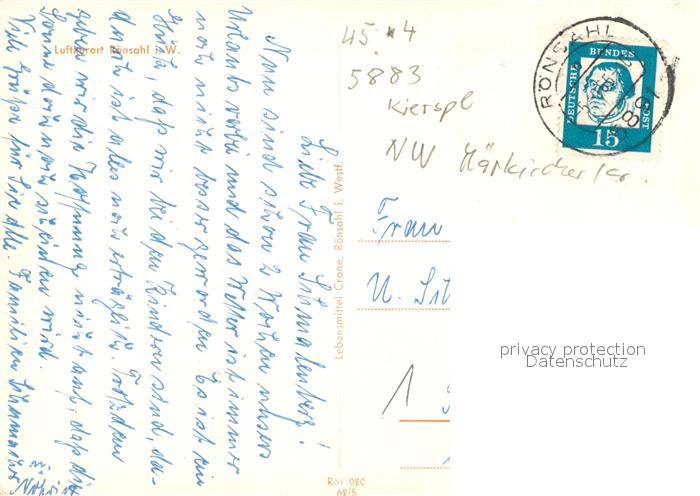 Luftkurort Rönsahl i. W.
Liebe Frau Schmalenberg!
Nun sind schon 2 Wochen unsers
Urlaubs vorbei und das Wetter ist immer
noch nicht besser geworden. Es ist ein
Glück, daß wir bei den Kindern sind, da-
durch ist alles noch erträglich. Trotzdem
geben wir die Hoffnung nicht auf, daß die
Sonne doch noch scheinen wird.
Viele Grüße für Sie alle. Familien
Lebensmittel Crone, Rönsahl i. Westf.
Rön 02C
62/5
45 * 4
5883
Kierspe
NW Märkischer Kr.
RÖNSAHL
5891
DEUTSCHE BUNDESPOST
15
Frau
U.
1
privacy protection
Datenschutz